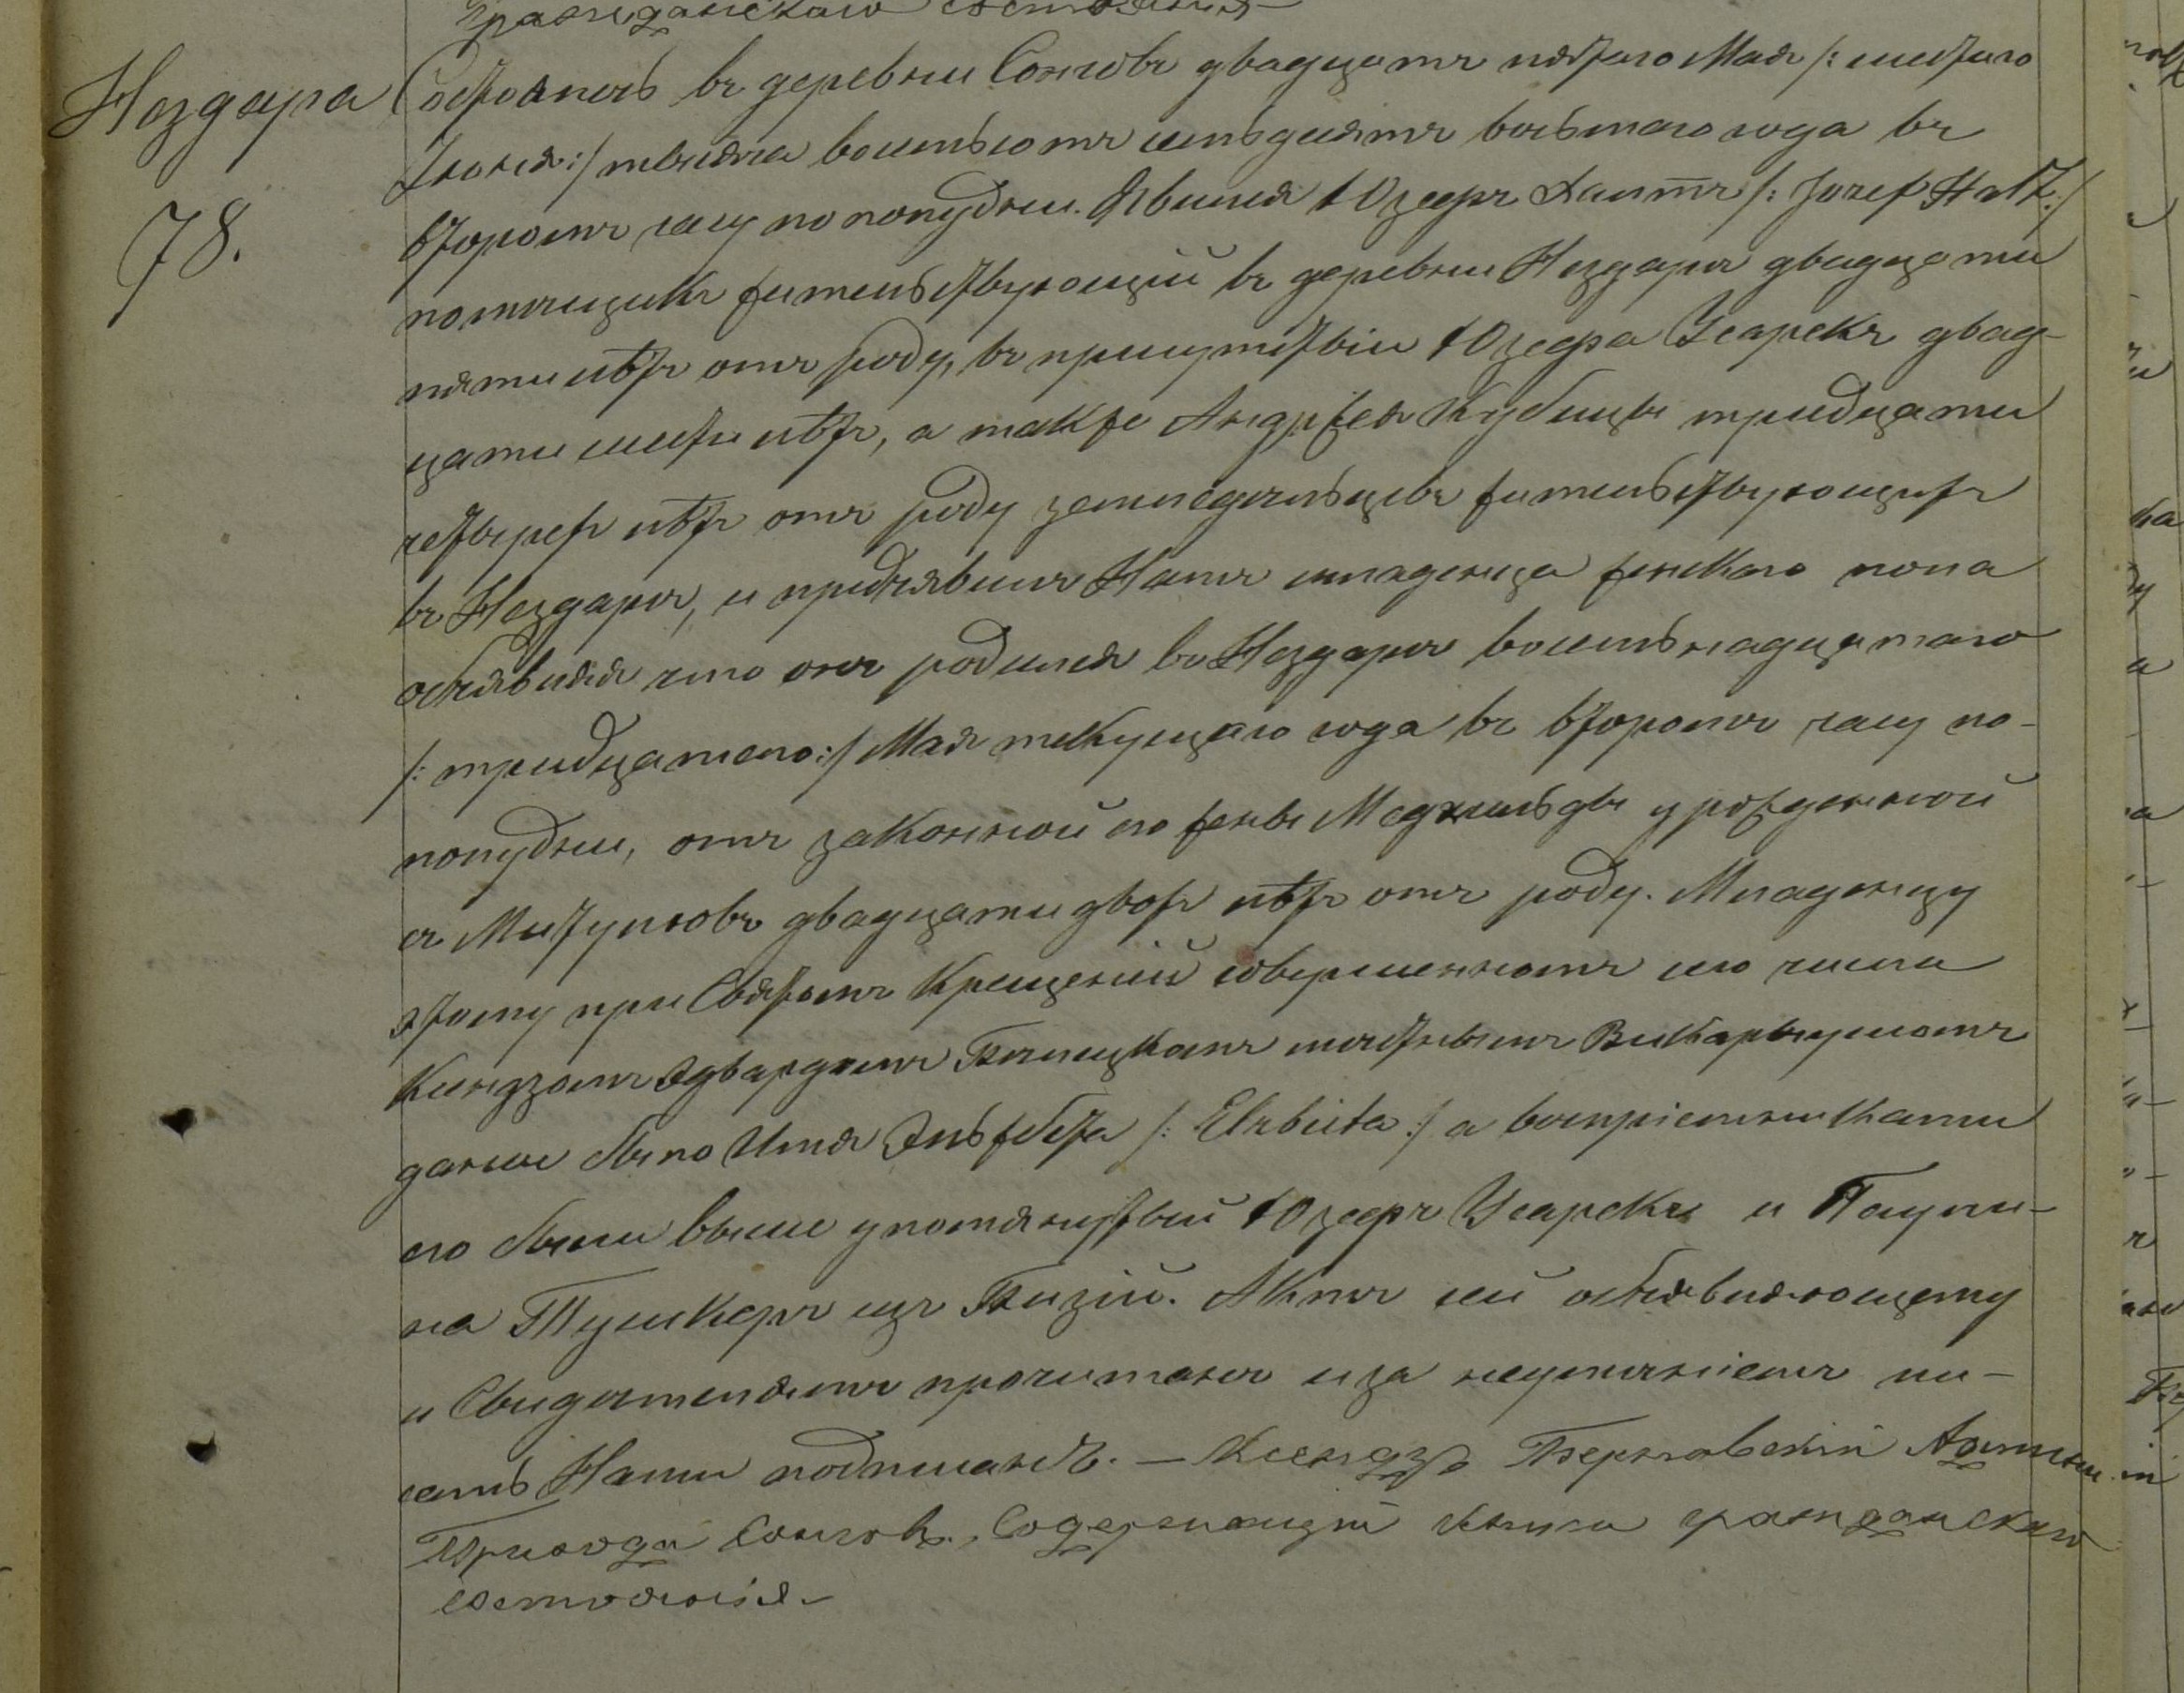 гражданскаго состоянія
Нездара
78.
Состоялось въ деревни Сончовъ двадцать пятаго Мая /: шестаго
Іюня :/ тысяча восемьсотъ семьдесятъ восьмаго года въ
второмъ часу по полудни. Явился Юзефъ Халтъ /: Jozef Hałt :/
помѣщикъ жительствующій въ деревни Нездарѣ двадцати
пяти лѣтъ отъ роду, въ присутствіи Юзефа Усарекъ двад-
цати шести лѣтъ, а также Андржея Кубицы тридцати
четырехъ лѣтъ отъ роду земледѣльцевъ жительствующихъ
въ Нездарѣ, и предъявилъ Намъ младенца женскаго пола
объявляя что онъ родился въ Нездарѣ восемьнадцатаго
/: тридцатаго :/ Мая текущаго года въ второмъ часу по-
полудни, отъ законной его жены Мехтильды урожденной
съ Мистуновъ двадцати двохъ лѣтъ отъ роду. Младенцу
этому при Святомъ Крещеній совершенномъ сего числа
Ксендзомъ Эдвардомъ мѣстнымъ Викаріушомъ
данно было Имя Эльжбета /: Elzbieta :/ а воспріемниками
его были выше упомянутый Юзефъ Усарекъ и Паули-
на Тушкеръ изъ Бизій. Актъ сей объявляющему
и Свидѣтелямъ прочитанъ и за неумѣніемъ пи-
сать Нами подписанъ. — Ксендзъ Админи.
Прихода Сонч., Содержающій книги гражданскаго
состоянія.